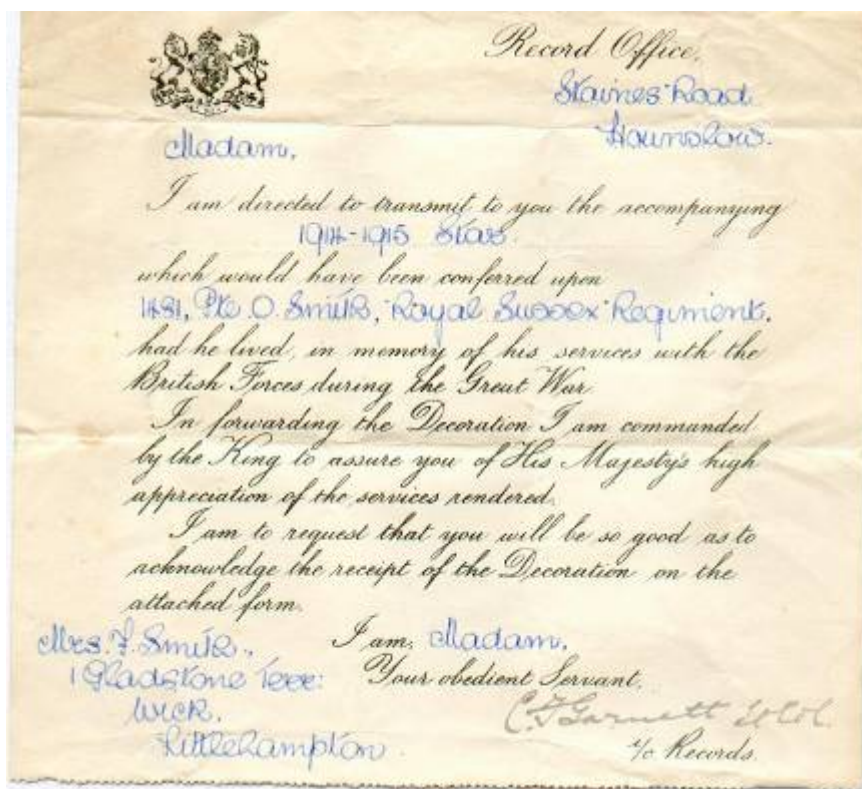 Record Office,
Staines Road
Hounslow.
Madam,
I am directed to transmit to you the accompanying
1914-1915 Star.
which would have been conferred upon
1481, Pte O. Smith, Royal Sussex Regiment.
had he lived, in memory of his services with the
British Forces during the Great War.
In forwarding the Decoration I am commanded
by the King to assure you of His Majesty's high
appreciation of the services rendered.
I am to request that you will be so good as to
acknowledge the receipt of the Decoration on the
attached form.
I am, Madam,
Your obedient Servant,
C F Garnett
i/c Records.
Mrs. F. Smith.,
1 Gladstone Terr:
Wick.
Littlehampton.